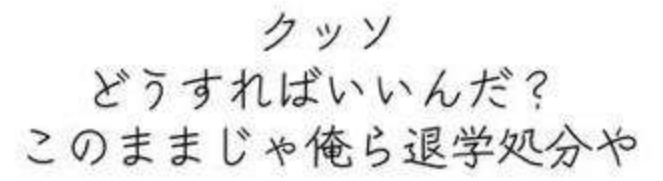 クッソ
どうすればいいんだ？
このままじゃ俺ら退学処分や